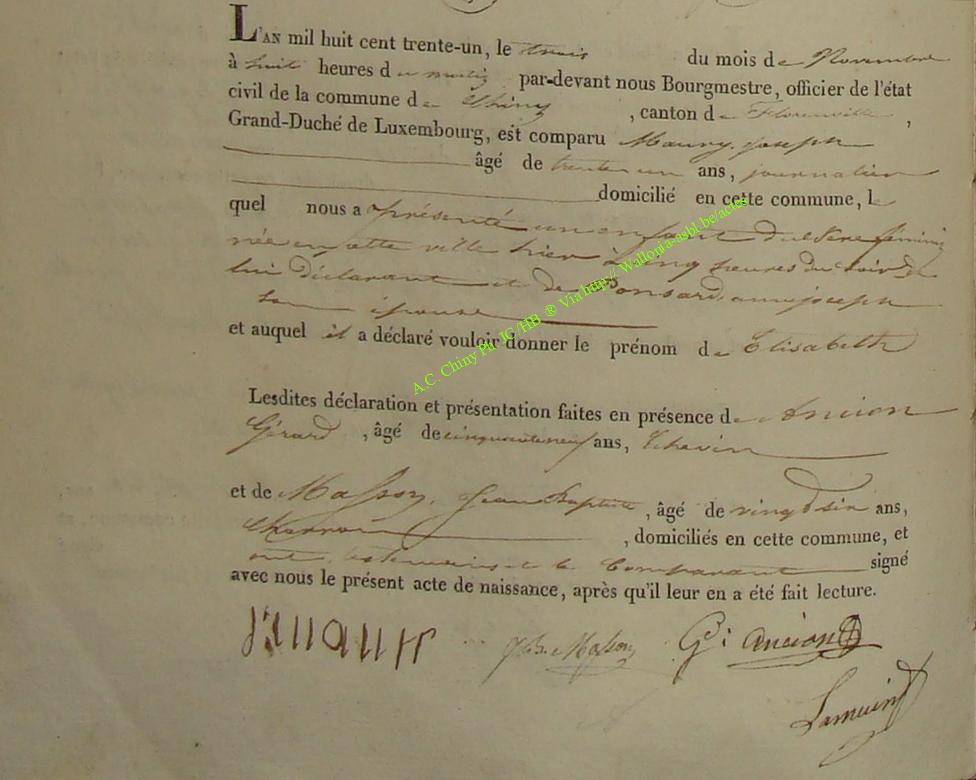 L'AN mil huit cent trente-un, le trois du mois de Novembre
à huit heures du matin par-devant nous Bourgmestre, officier de l'état
civil de la commune de Chiny, canton de Florenville,
Grand-Duché de Luxembourg, est comparu Maury, joseph
âgé de trente un ans, journalier
domicilié en cette commune, le
quel nous a présenté un enfant du Sexe féminin
née en cette ville hier à cinq heures du Soir de
lui Déclarant et de Ponsard, anne joseph
Son épouse
et auquel il a déclaré vouloir donner le prénom de Elisabeth
Lesdites déclaration et présentation faites en présence de Ancion
Gérard, âgé de cinquanteneuf ans, Echevin
et de Masson, Jean Baptiste, âgé de vingt Six ans,
Charron, domiciliés en cette commune, et
ont les temoins et le Comparant signé
avec nous le présent acte de naissance, après qu'il leur en a été fait lecture.
J.B. Masson Gd: ancion
A.C. Chiny Ph JC/HB ® Via http://Wallonia-asbl.be/actes